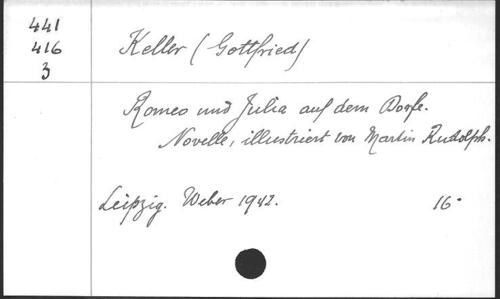 441
416
3
Keller (Gottfried)
Romeo und Julia auf dem Dorfe.
Novelle, illustriert von Martin Rudolph.
Leipzig. Weber 1942.
16°